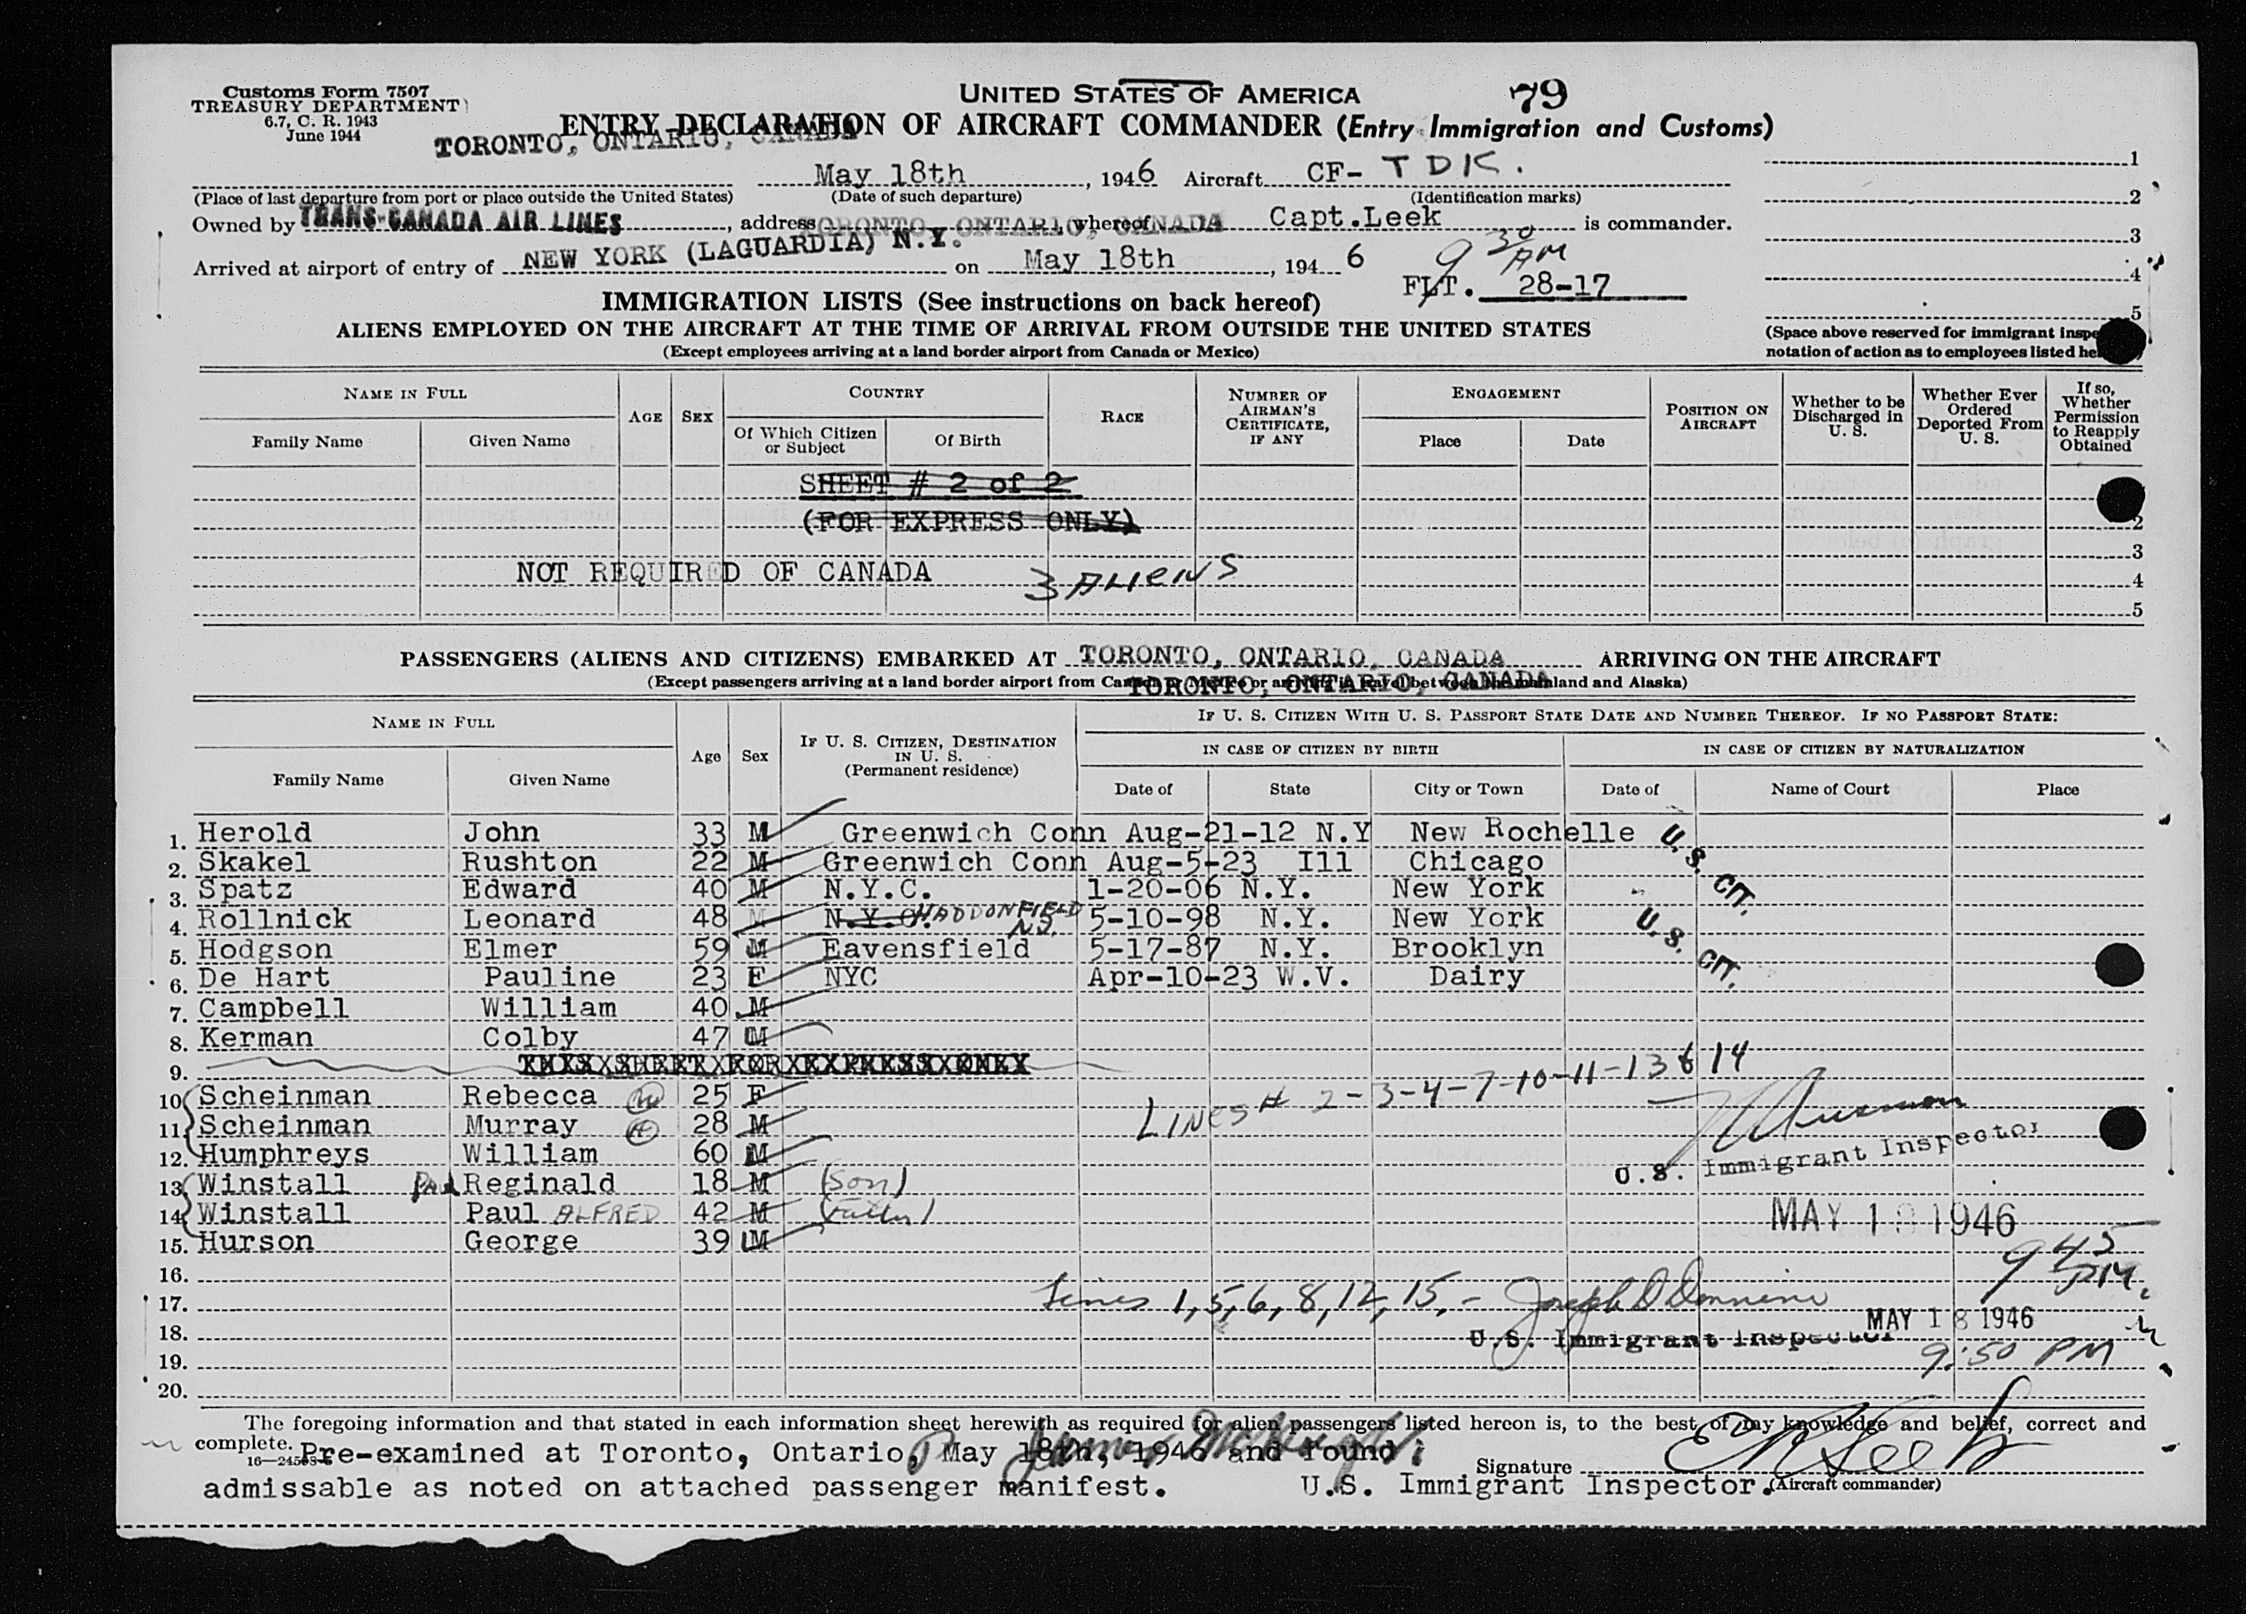 Customs Form 7507
TREASURY DEPARTMENT
6.7, C. R. 1943
June 1944
UNITED STATES OF AMERICA
79
ENTRY DECLARATION OF AIRCRAFT COMMANDER (Entry Immigration and Customs)
TORONTO, ONTARIO, CANADA
May 18th, 1946 Aircraft CF- TDK.
(Place of last departure from port or place outside the United States) (Date of such departure) (Identification marks)
Owned by TRANS-CANADA AIR LINES, address TORONTO, ONTARIO, CANADA whereof Capt.Leek is commander.
Arrived at airport of entry of NEW YORK (LAGUARDIA) N.Y. on May 18th, 1946
9 30 AM
FLT. 28-17
1
2
3
4
5
(Space above reserved for immigrant inspe
notation of action as to employees listed he
IMMIGRATION LISTS (See instructions on back hereof)
ALIENS EMPLOYED ON THE AIRCRAFT AT THE TIME OF ARRIVAL FROM OUTSIDE THE UNITED STATES
(Except employees arriving at a land border airport from Canada or Mexico)
NAME IN FULL AGE SEX COUNTRY RACE NUMBER OF AIRMAN'S CERTIFICATE, IF ANY ENGAGEMENT POSITION ON AIRCRAFT Whether to be Discharged in U. S. Whether Ever Ordered Deported From U. S. If so, Whether Permission to Reapply Obtained
Family Name Given Name Of Which Citizen or Subject Of Birth Place Date
SHEET # 2 of 2
(FOR EXPRESS ONLY) 2
3
NOT REQUIRED OF CANADA 3 ALIENS 4
5
PASSENGERS (ALIENS AND CITIZENS) EMBARKED AT TORONTO, ONTARIO, CANADA ARRIVING ON THE AIRCRAFT
(Except passengers arriving at a land border airport from Canada or Mexico or arriving in travel between the mainland and Alaska)
TORONTO, ONTARIO, CANADA
NAME IN FULL Age Sex IF U. S. CITIZEN, DESTINATION IN U. S. (Permanent residence) IF U. S. CITIZEN WITH U. S. PASSPORT STATE DATE AND NUMBER THEREOF. IF NO PASSPORT STATE:
IN CASE OF CITIZEN BY BIRTH IN CASE OF CITIZEN BY NATURALIZATION
Family Name Given Name Date of State City or Town Date of Name of Court Place
1. Herold John 33 M Greenwich Conn Aug-21-12 N.Y New Rochelle
2. Skakel Rushton 22 M Greenwich Conn Aug-5-23 Ill Chicago
U. S. CIT.
3. Spatz Edward 40 M N.Y.C. 1-20-06 N.Y. New York
4. Rollnick Leonard 48 M N.Y.C. HADDONFIELD N.J. 5-10-98 N.Y. New York
5. Hodgson Elmer 59 M Eavensfield 5-17-87 N.Y. Brooklyn
U. S. CIT.
6. De Hart Pauline 23 F NYC Apr-10-23 W.V. Dairy
7. Campbell William 40 M
8. Kerman Colby 47 M
9. THIS SHEET FOR EXPRESS ONLY
10. Scheinman Rebecca (W) 25 F
LINES # 2-3-4-7-10-11-13 & 14
11. Scheinman Murray (H) 28 M
12. Humphreys William 60 M
U.S. Immigrant Inspector
13. Winstall Paul Reginald 18 M (Son)
14. Winstall Paul ALFRED 42 M (Father)
MAY 18 1946
15. Hurson George 39 M
9 45 PM.
16.
17. Lines 1, 5, 6, 8, 12, 15, - Joseph D
MAY 18 1946
18. U.S. Immigrant Inspector
19. 9:50 PM
20.
The foregoing information and that stated in each information sheet herewith as required for alien passengers listed hereon is, to the best of my knowledge and belief, correct and
complete. Pre-examined at Toronto, Ontario, May 18th, 1946 and found
16—24508
Signature
admissable as noted on attached passenger manifest. U.S. Immigrant Inspector. (Aircraft commander)